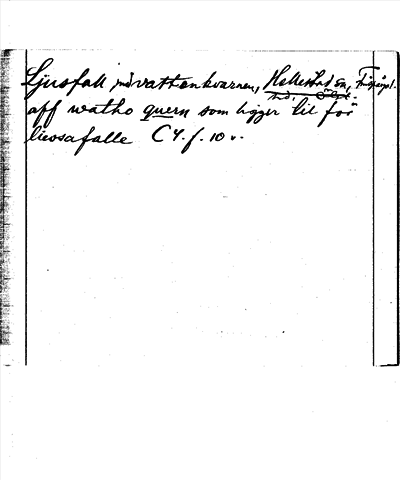 Ljusfall invid vattenkvarnen, Hellestad sn, Finspångsl.
aff watho quern som ligger til for
liwsafalle C 4. f. 10 v.